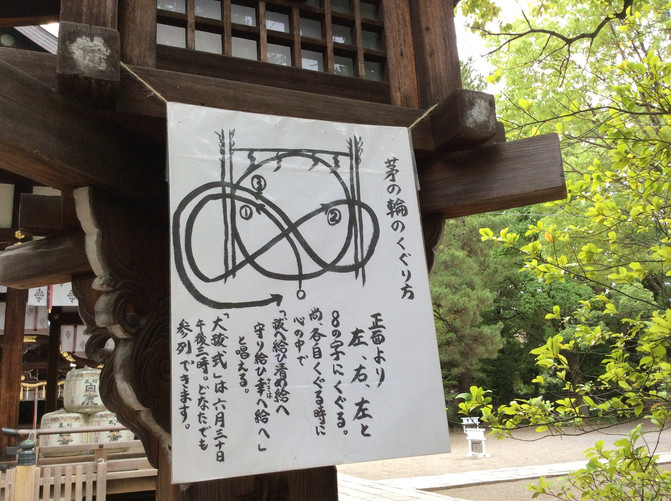 茅の輪のくぐり方
①
②
③
正面より
左、右、左と
8の字にくぐる。
尚各自くぐる時に
心の中で
「祓へ給ひ清め給へ
守り給ひ幸へ給へ」
さきは
と唱える。
「大祓式」は六月三十日
午後三時。どなたでも
参列できます。